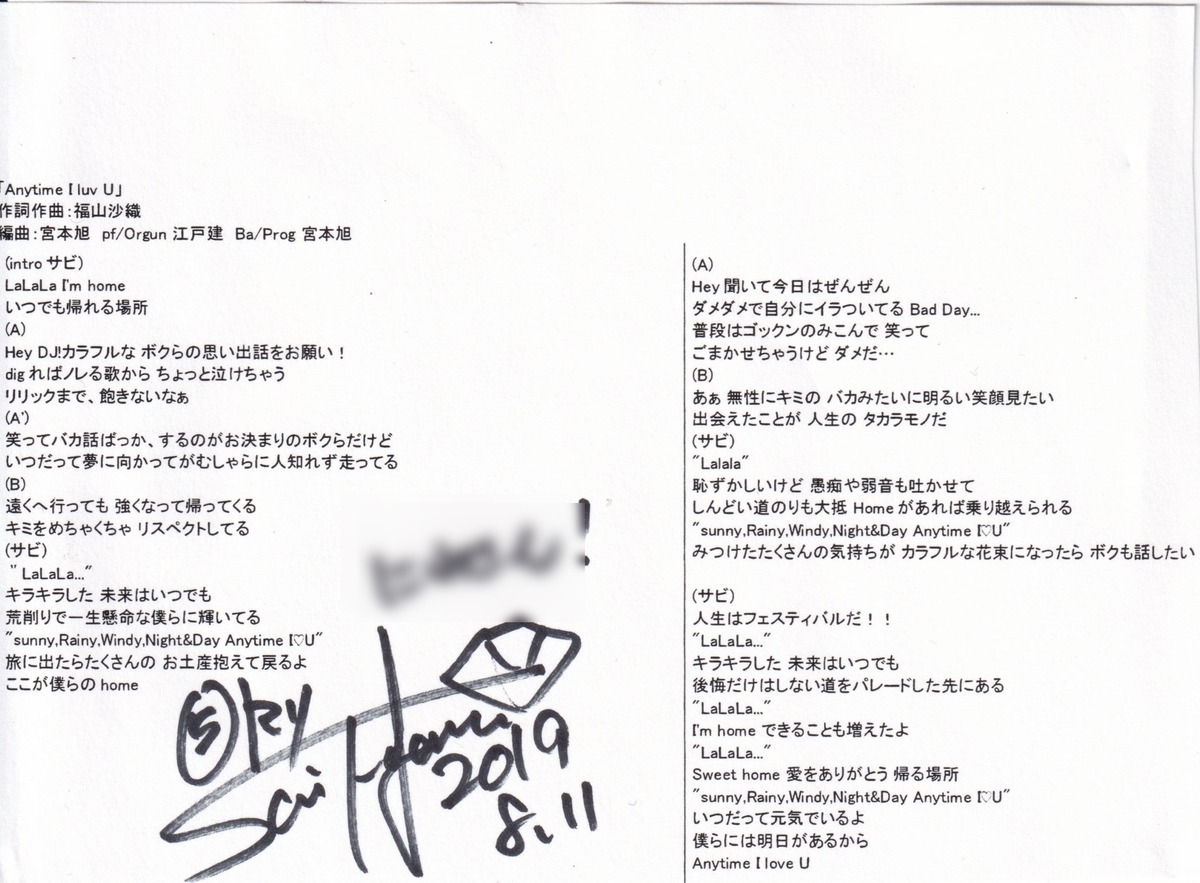 「Anytime I luv U」
作詞作曲：福山沙織
編曲：宮本旭　pf/Orgun 江戸建　Ba/Prog 宮本旭
(intro サビ)
LaLaLa I'm home
いつでも帰れる場所
(A)
Hey DJ!カラフルな ボクらの思い出話をお願い！
dig ればノレる歌から ちょっと泣けちゃう
リリックまで、飽きないなぁ
(A')
笑ってバカ話ばっか、するのがお決まりのボクらだけど
いつだって夢に向かってがむしゃらに人知れず走ってる
(B)
遠くへ行っても 強くなって帰ってくる
キミをめちゃくちゃ リスペクトしてる
(サビ)
" LaLaLa..."
キラキラした 未来はいつでも
荒削りで一生懸命な僕らに輝いてる
"sunny,Rainy,Windy,Night&Day Anytime I♡U"
旅に出たらたくさんの お土産抱えて戻るよ
ここが僕らの home
2019
8.11
(A)
Hey 聞いて今日はぜんぜん
ダメダメで自分にイラついてる Bad Day...
普段はゴックンのみこんで 笑って
ごまかせちゃうけど ダメだ…
(B)
あぁ 無性にキミの バカみたいに明るい笑顔見たい
出会えたことが 人生の タカラモノだ
(サビ)
"Lalala"
恥ずかしいけど 愚痴や弱音も吐かせて
しんどい道のりも大抵 Home があれば乗り越えられる
"sunny,Rainy,Windy,Night&Day Anytime I♡U"
みつけたたくさんの気持ちが カラフルな花束になったら ボクも話したい
(サビ)
人生はフェスティバルだ！！
"LaLaLa..."
キラキラした 未来はいつでも
後悔だけはしない道をパレードした先にある
"LaLaLa..."
I'm home できることも増えたよ
"LaLaLa..."
Sweet home 愛をありがとう 帰る場所
"sunny,Rainy,Windy,Night&Day Anytime I♡U"
いつだって元気でいるよ
僕らには明日があるから
Anytime I love U